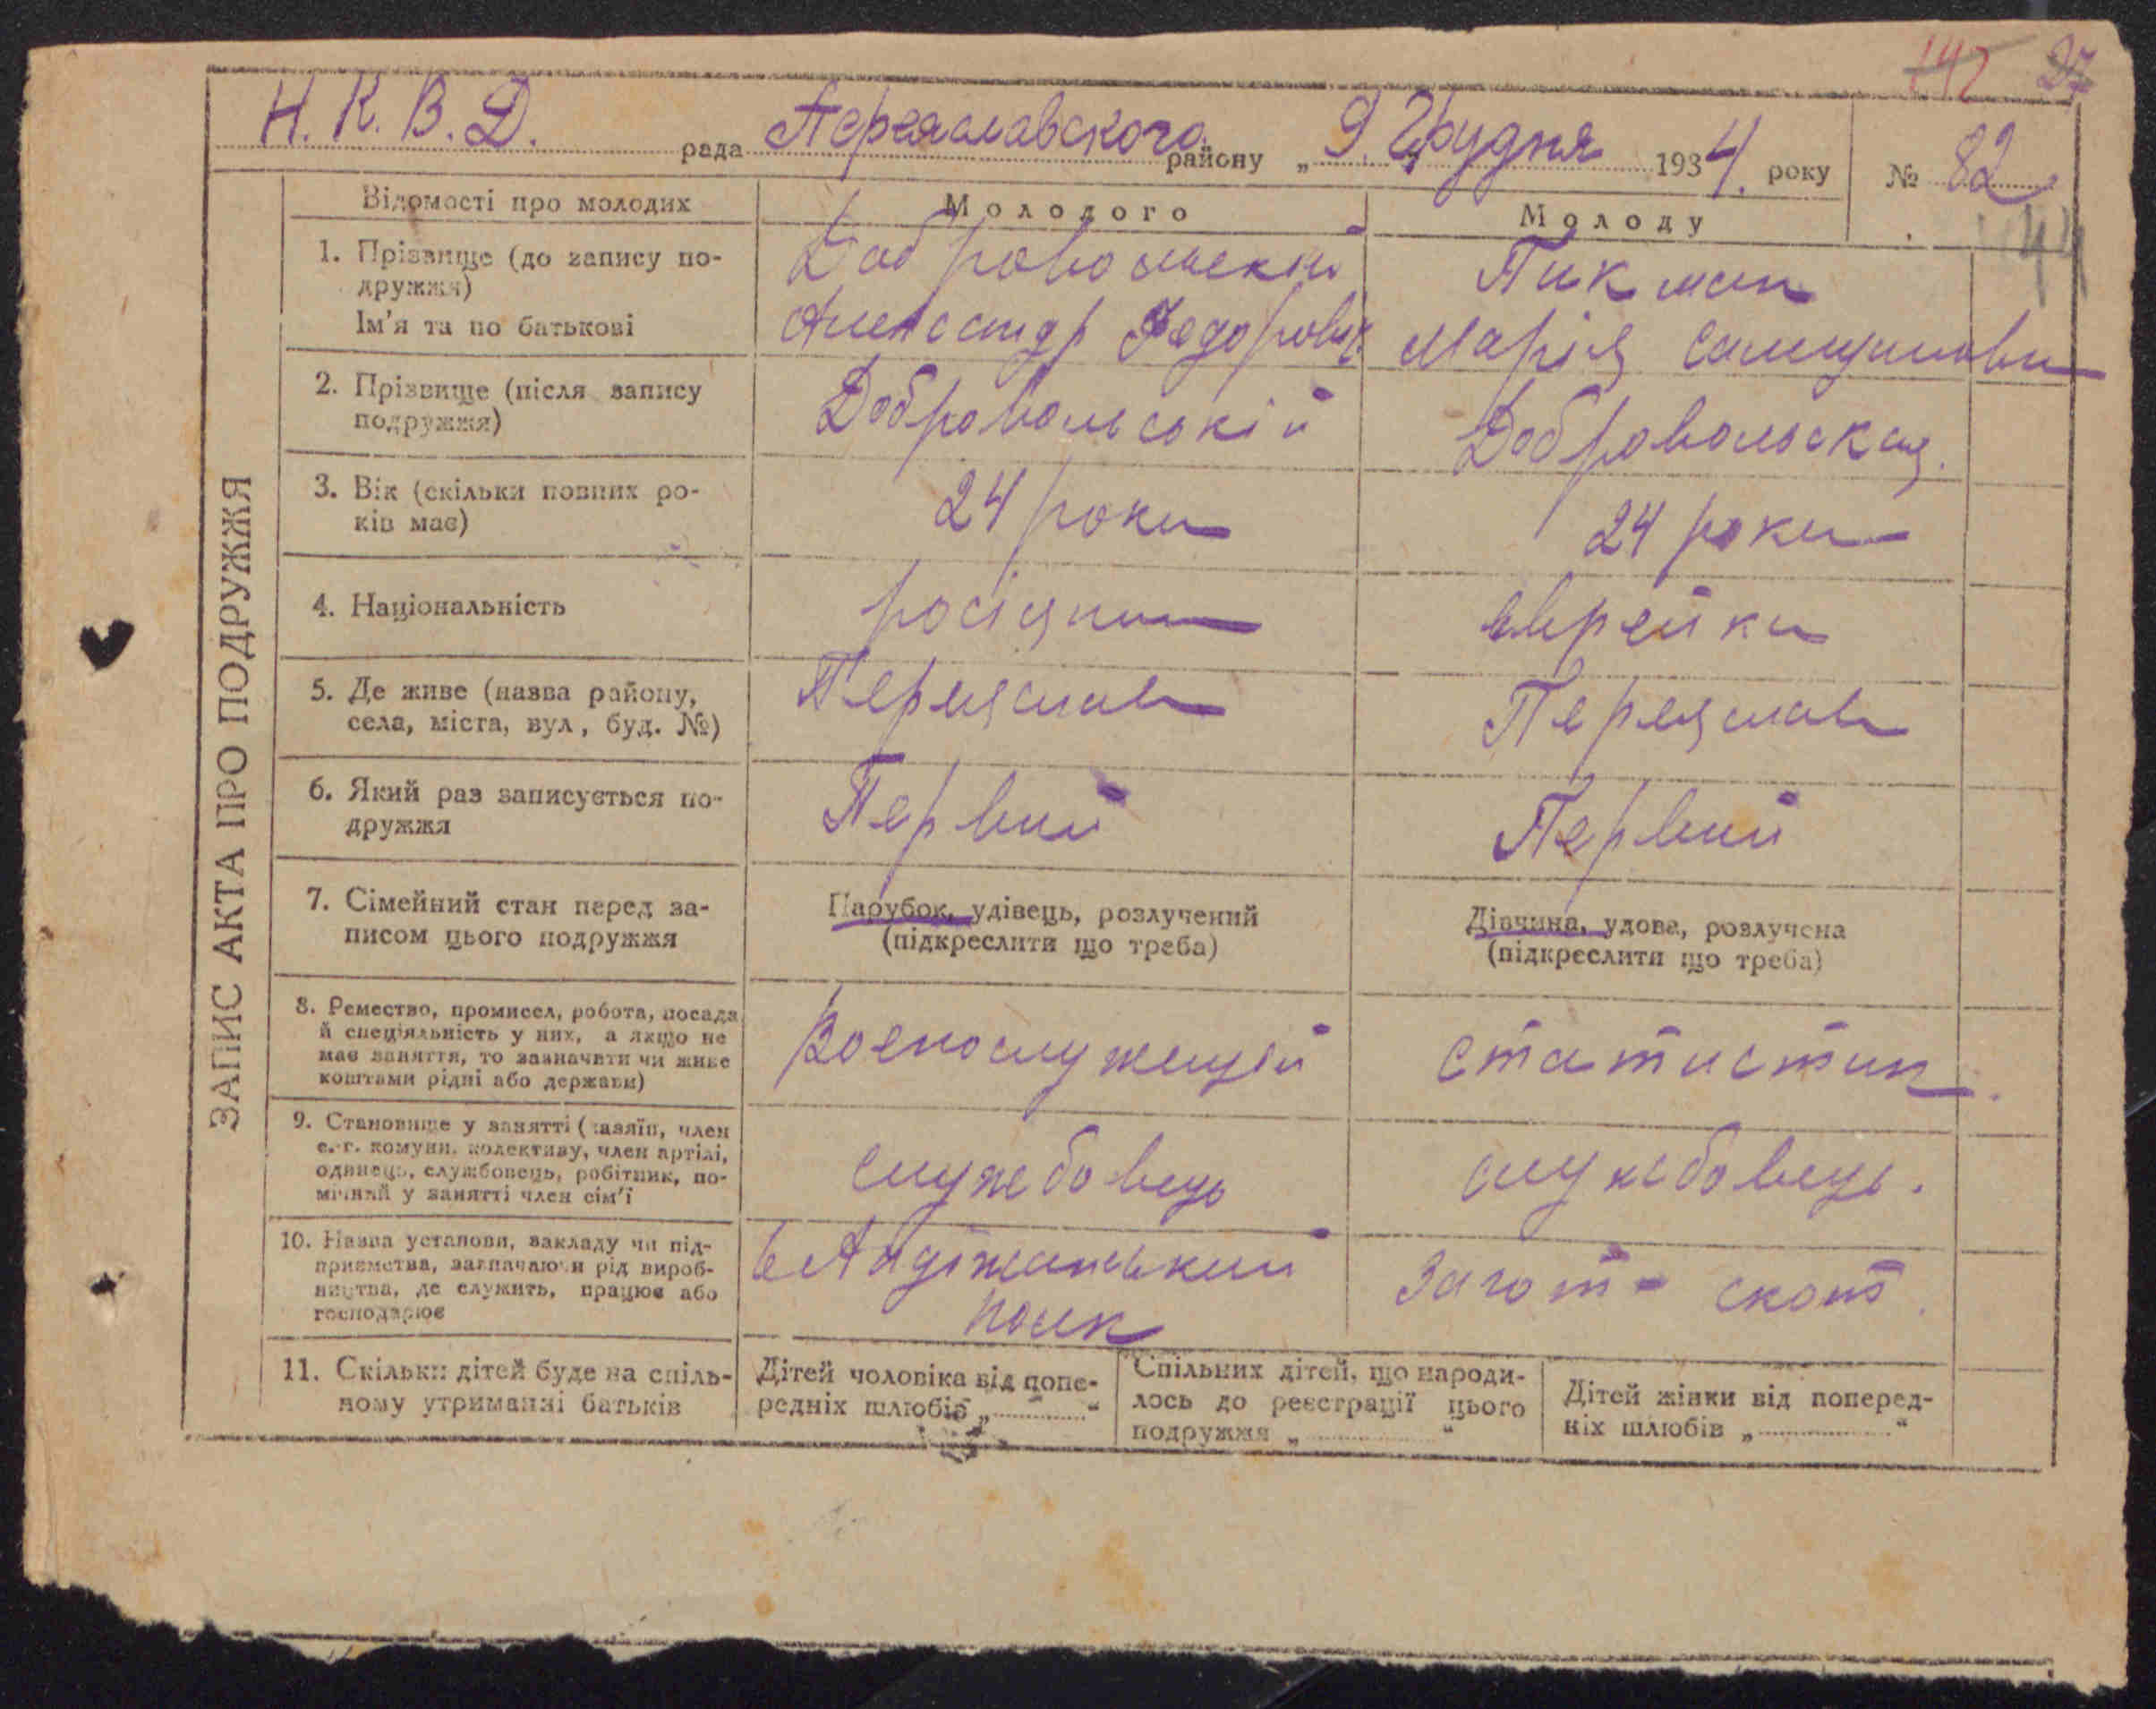 142 27
Н. К. В. Д. рада Переяславского району „ 9 " Грудня 1934. року № 82
44
ЗАПИС АКТА ПРО ПОДРУЖЖЯ
Відомості про молодих
Молодого
Молоду
1. Прізвище (до запису по-
дружжя)
Ім'я та по батькові
Добровольский
Александр Федорович
Пикман
Марія
2. Прізвище (після запису
подружжя)
Добровольській
Добровольская.
3. Вік (скільки повних ро-
ків має)
24 роки
24 роки
4. Національність
росіянин
еврейка
5. Де живе (назва району,
села, міста, вул, буд. №)
Переяслав
Переяслав
6. Який раз записується по-
дружжя
Первий
Первий
7. Сімейний стан перед за-
писом цього подружжя
Парубок, удівець, розлучений
(підкреслити що треба)
Дівчина, удова, розлучена
(підкреслити що треба)
8. Ремество, промисел, робота, посада
й спеціяльність у них, а якщо не
має заняття, то зазначити чи живе
коштами рідні або держави)
Военослужещій
статистик.
9. Становище у занятті (хазяїн, член
с.-г. комуни, колективу, член артілі,
одинець, службовець, робітник, по-
мічний у занятті член сім'ї
службовець
службовець.
10. Назва установи, закладу чи під-
приємства, зазначаючи рід вироб-
ництва, де служить, працює або
господарює
6 Андіжанський
полк
Загот - скот.
11. Скільки дітей буде на спіль-
ному утриманні батьків
Дітей чоловіка від попе-
редніх шлюбів „ “
Спільних дітей, що народи-
лось до реєстрації цього
подружжя „ “
Дітей жінки від поперед-
ніх шлюбів „ “